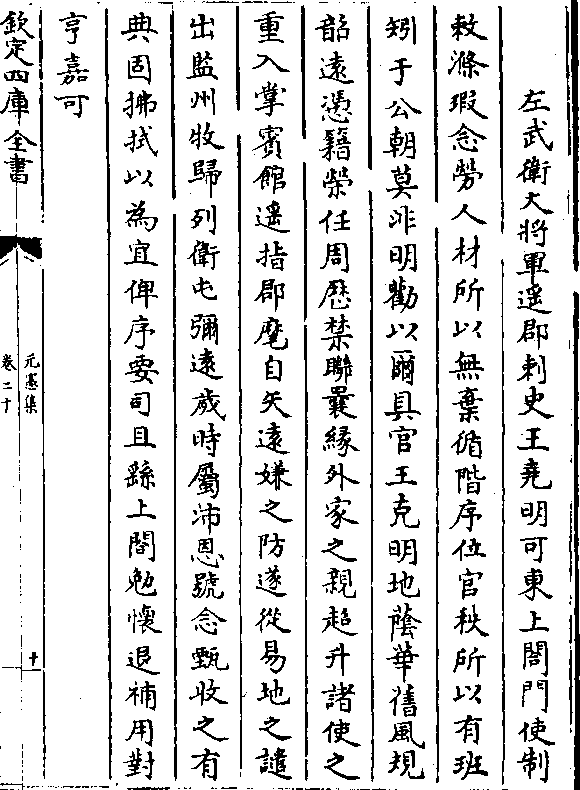 左武衛大將軍遥郡刺史王堯明可東上閤門使制
敕滌瑕念勞人材所以無棄循階序位官秩所以有班
矧于公朝莫非明勸以爾具官王克明地蔭華舊風規
韶遠憑籍榮任周歴禁聯曩縁外家之親超升諸使之
重入掌賓館遥指郡麾自失遠嫌之防遂從易地之譴
出監州牧歸列衛屯彌遠歲時屬沛恩號念甄收之有
典固拂拭以為宜俾序要司且繇上閤勉懷退補用對
亨嘉可
欽定四庫全書
元憲集
卷二十
十